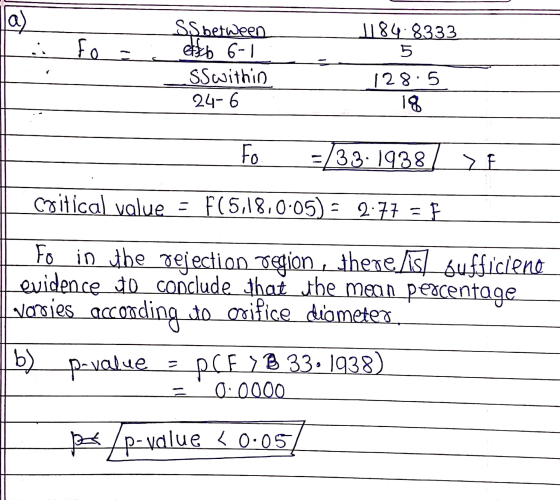 a)
∴ Fo = SSbetween / 6-1 / SSwithin / 24-6 = 1184.8333 / 5 / 128.5 / 18
Fo = 33.1938 > F
Critical value = F(5,18,0.05) = 2.77 = F
Fo in the rejection region, there is sufficient
evidence to conclude that the mean percentage
varies according to orifice diameter.
b) p-value = p(F > 33.1938)
= 0.0000
p-value < 0.05